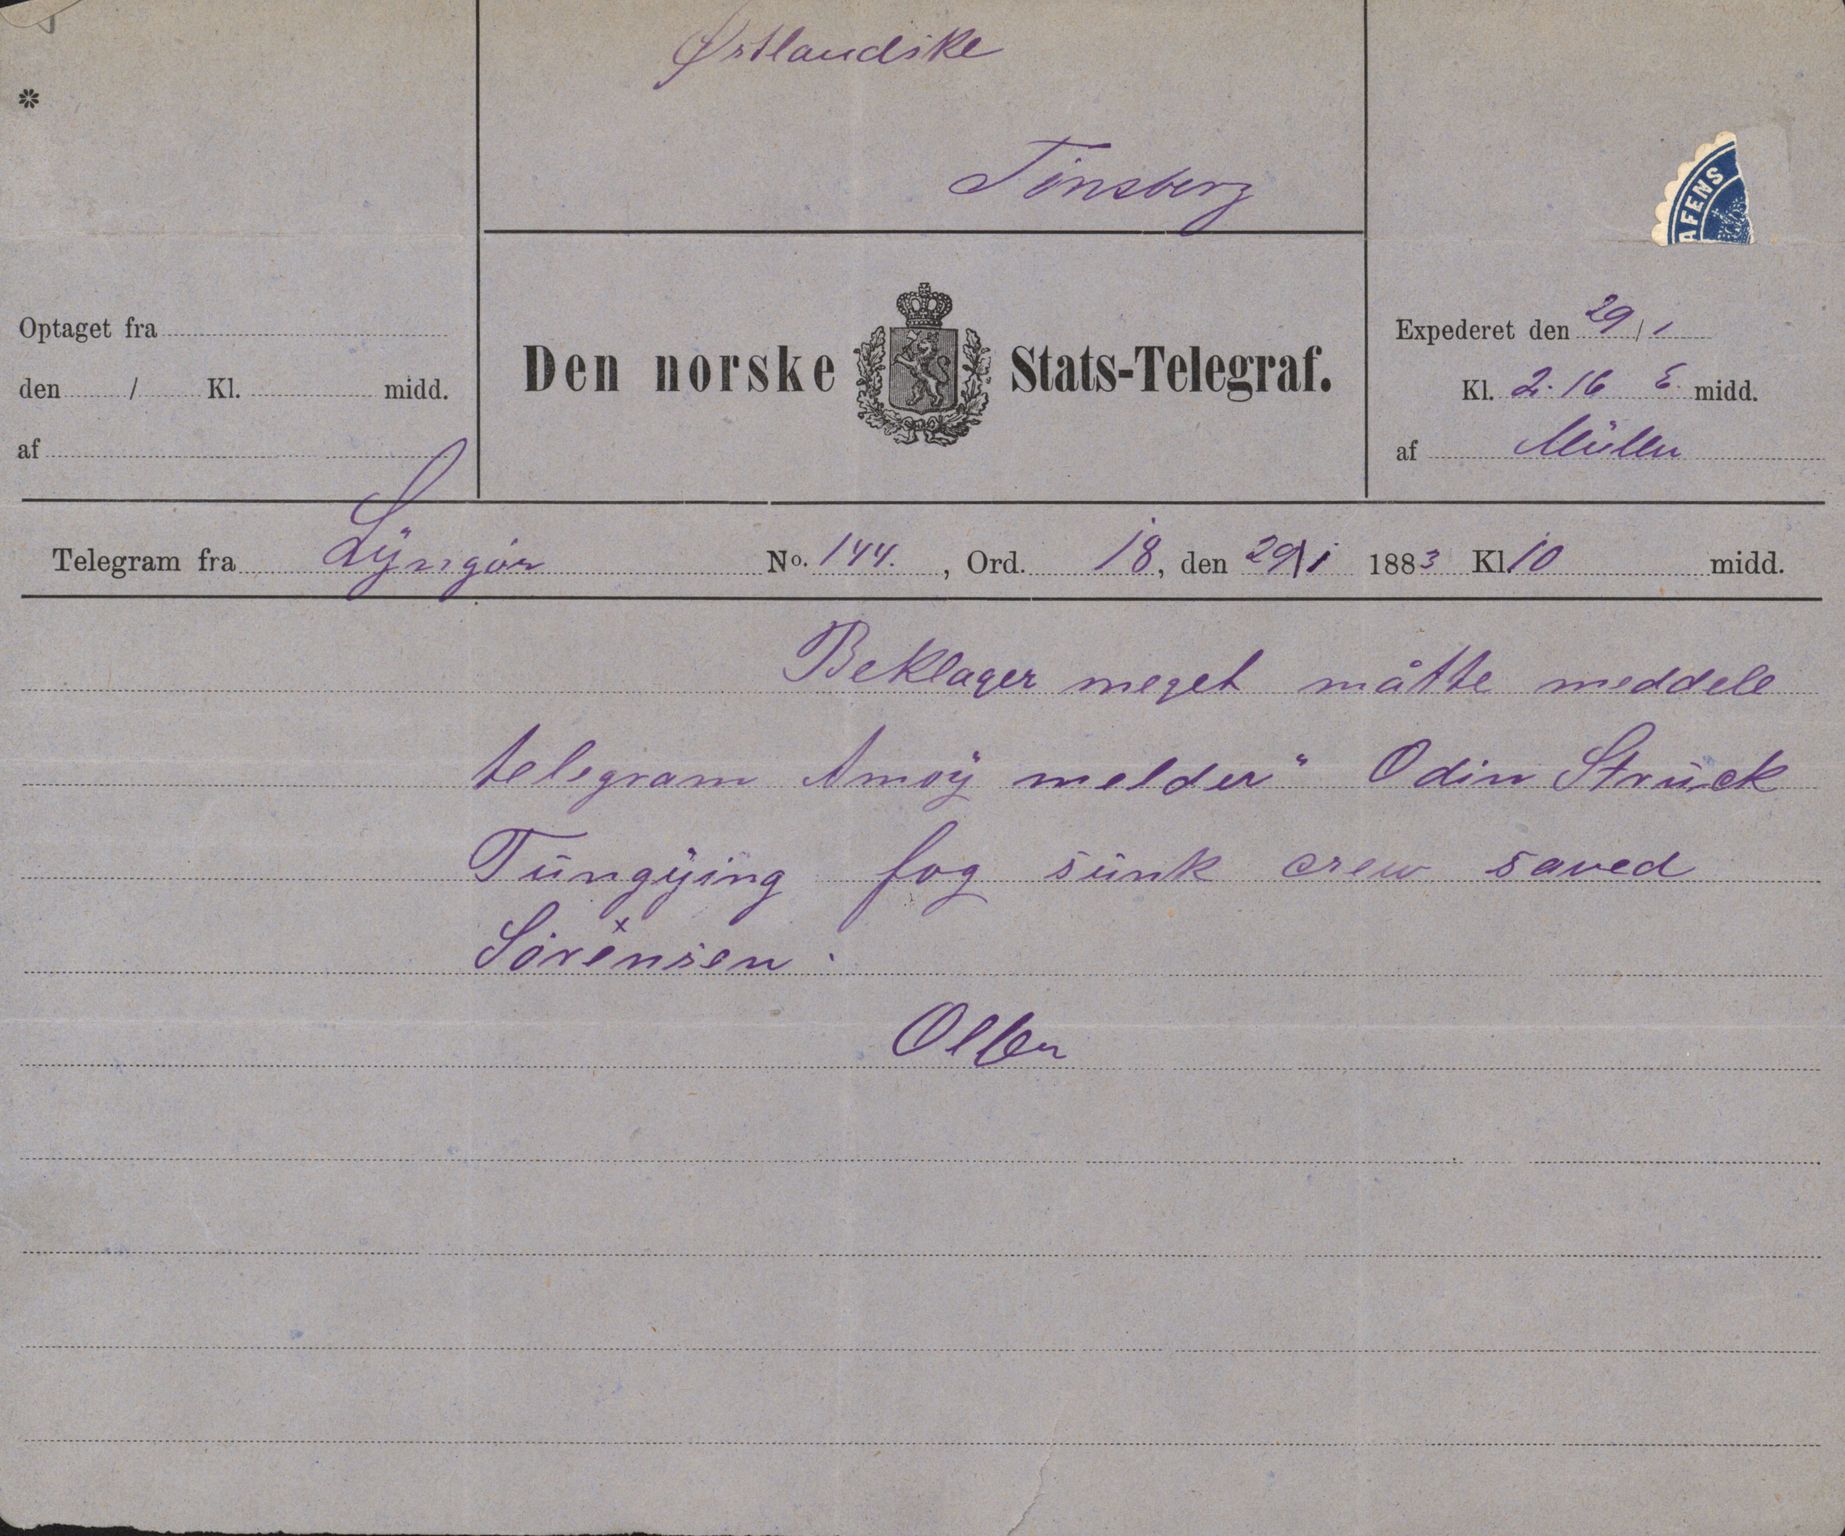 Østlandske
Tönsberg
*
AFENS
Optaget fra
den / Kl. midd.
af
Den norske Stats-Telegraf.
Expederet den 29/1
Kl. 2.16 E. midd.
af Müller
Telegram fra Lyngör No. 144. , Ord. 18, den 29/1 1883 Kl. 10 midd.
Beklager meget måtte meddele
telegram Amoy melder " Odin Struck
Tungying fog sunk crew saved
Sörensen .